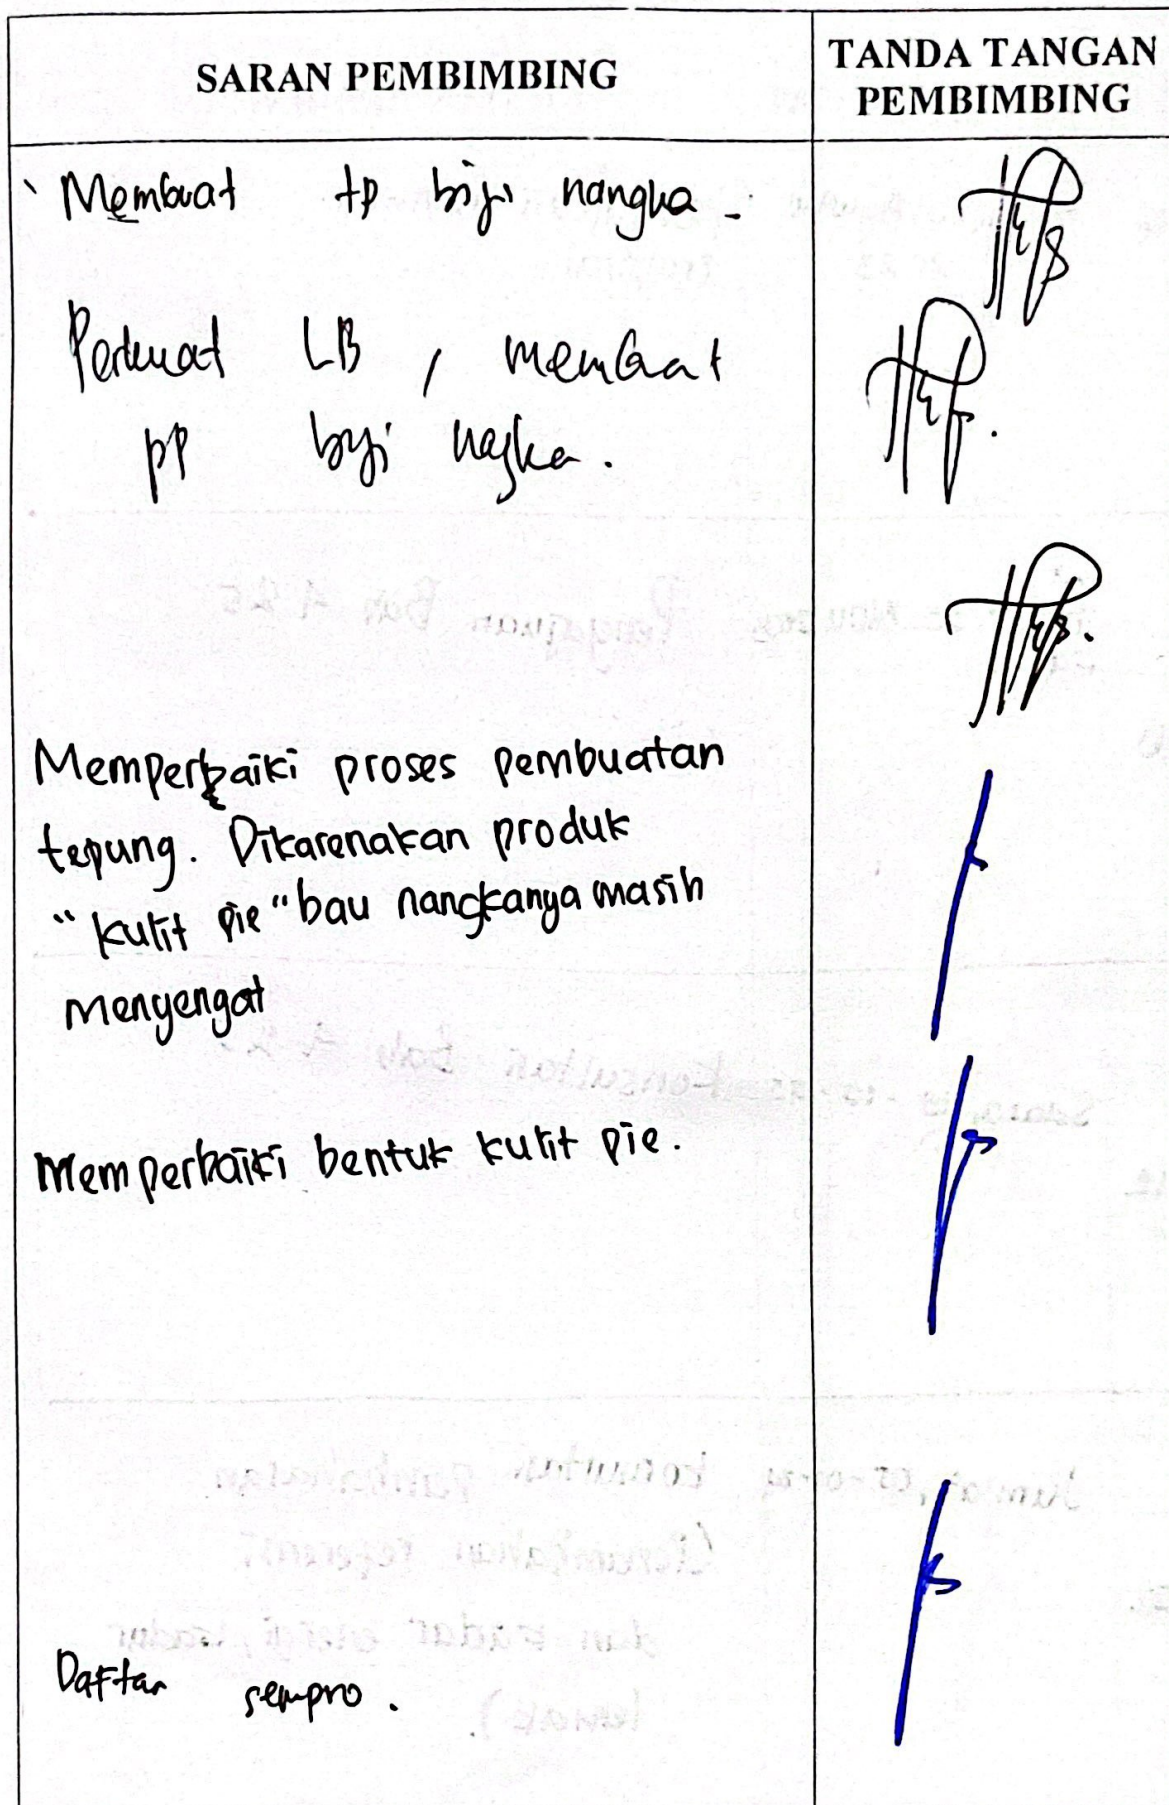 SARAN PEMBIMBING
TANDA TANGAN
PEMBIMBING
Membuat tp biji nangka.
Perkuat LB, membuat
pp biji nagka.
Memperbaiki proses pembuatan
tepung. Dikarenakan produk
"kulit pie" bau nangkanya masih
menyengat
Memperbaiki bentuk kulit pie.
Daftar sempro.